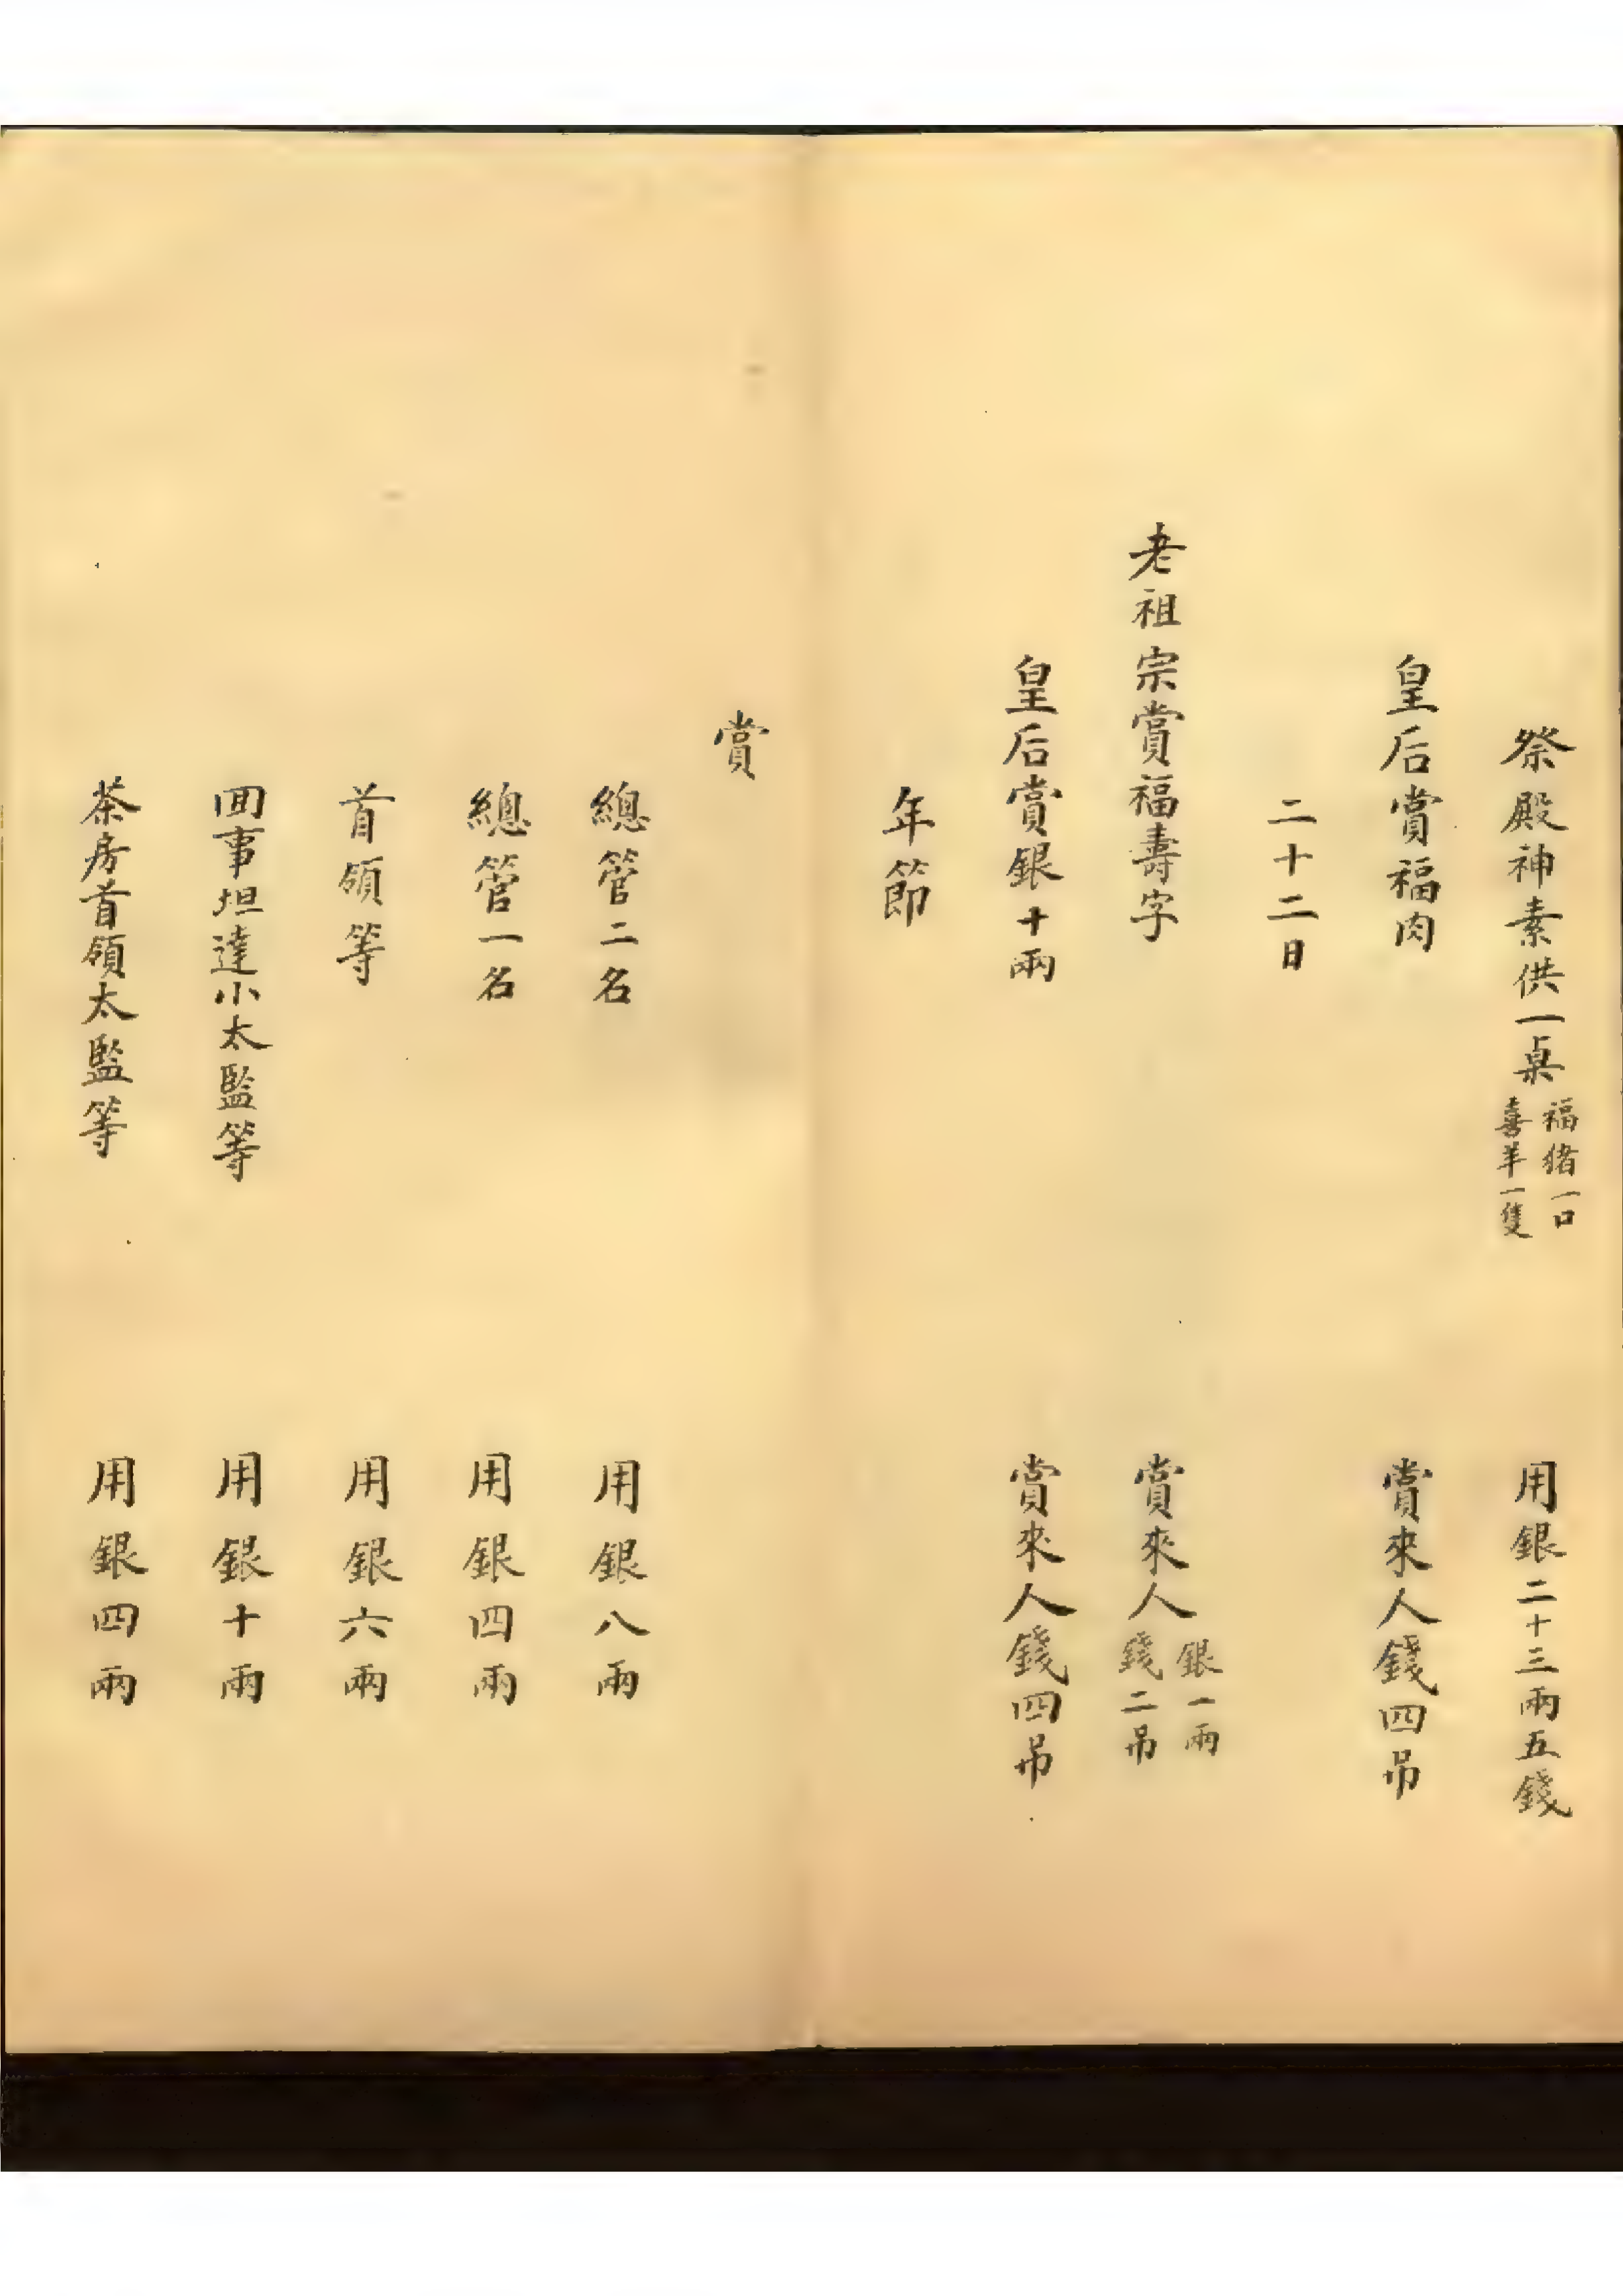 祭殿神素供一桌福猪一口喜羊一隻 用銀二十三兩五錢
皇后賞福肉 賞來人錢四吊
二十二日
老祖宗賞福壽字 賞來人銀一兩錢二吊
皇后賞銀十兩 賞來人錢四吊
年節
賞
總管二名 用銀八兩
總管一名 用銀四兩
首領等 用銀六兩
囬事坦達小太監等 用銀十兩
茶房首領太監等 用銀四兩